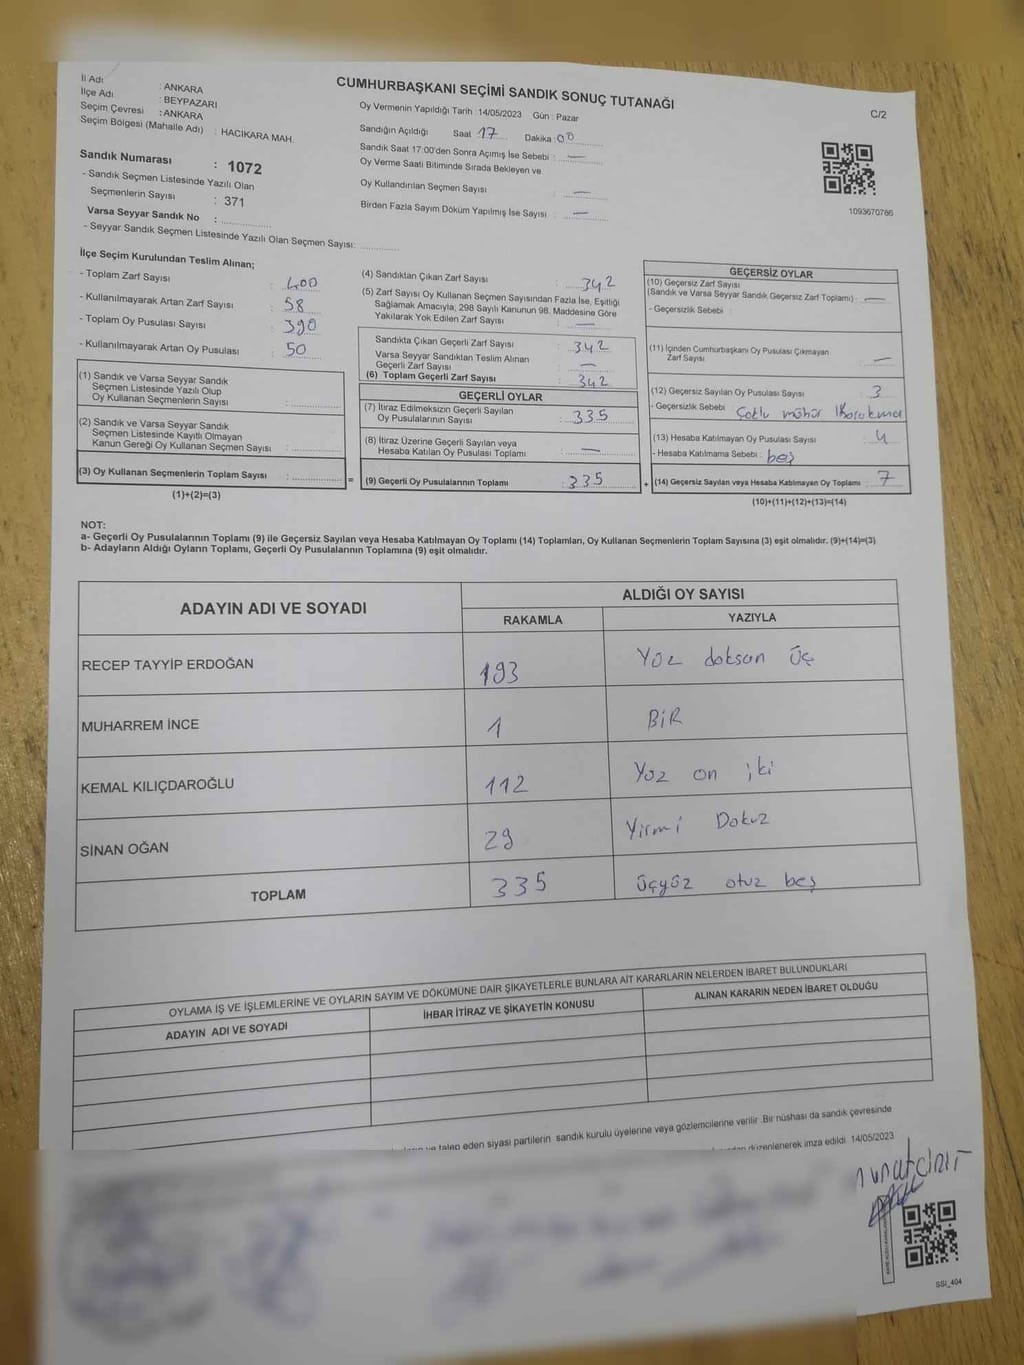 CUMHURBAŞKANI SEÇİMİ SANDIK SONUÇ TUTANAĞI
C/2
İl Adı : ANKARA
İlçe Adı : BEYPAZARI
Seçim Çevresi : ANKARA
Seçim Bölgesi (Mahalle Adı) : HACIKARA MAH.
Sandık Numarası : 1072
- Sandık Seçmen Listesinde Yazılı Olan
Seçmenlerin Sayısı : 371
Varsa Seyyar Sandık No :
- Seyyar Sandık Seçmen Listesinde Yazılı Olan Seçmen Sayısı:
Oy Vermenin Yapıldığı Tarih :14/05/2023 Gün : Pazar
Sandığın Açıldığı Saat 17 Dakika : 00
Sandık Saat 17:00'den Sonra Açımış İse Sebebi : —
Oy Verme Saati Bitiminde Sırada Bekleyen ve
Oy Kullandırılan Seçmen Sayısı : —
Birden Fazla Sayım Döküm Yapılmış İse Sayısı : —
1093670786
İlçe Seçim Kurulundan Teslim Alınan;
- Toplam Zarf Sayısı : 400
- Kullanılmayarak Artan Zarf Sayısı : 58
- Toplam Oy Pusulası Sayısı : 390
- Kullanılmayarak Artan Oy Pusulası : 50
(1) Sandık ve Varsa Seyyar Sandık
Seçmen Listesinde Yazılı Olup
Oy Kullanan Seçmenlerin Sayısı :
(2) Sandık ve Varsa Seyyar Sandık
Seçmen Listesinde Kayıtlı Olmayan
Kanun Gereği Oy Kullanan Seçmen Sayısı :
(3) Oy Kullanan Seçmenlerin Toplam Sayısı : =
(1)+(2)=(3)
(4) Sandıktan Çıkan Zarf Sayısı : 342
(5) Zarf Sayısı Oy Kullanan Seçmen Sayısından Fazla İse, Eşitliği
Sağlamak Amacıyla, 298 Sayılı Kanunun 98. Maddesine Göre
Yakılarak Yok Edilen Zarf Sayısı : —
Sandıkta Çıkan Geçerli Zarf Sayısı : 342
Varsa Seyyar Sandıktan Teslim Alınan
Geçerli Zarf Sayısı : —
(6) Toplam Geçerli Zarf Sayısı : 342
GEÇERLİ OYLAR
(7) İtiraz Edilmeksizin Geçerli Sayılan
Oy Pusulalarının Sayısı : 335
(8) İtiraz Üzerine Geçerli Sayılan veya
Hesaba Katılan Oy Pusulası Toplamı : —
(9) Geçerli Oy Pusulalarının Toplamı : 335 +
GEÇERSİZ OYLAR
(10) Geçersiz Zarf Sayısı
(Sandık ve Varsa Seyyar Sandık Geçersiz Zarf Toplamı) : —
- Geçersizlik Sebebi :
(11) İçinden Cumhurbaşkanı Oy Pusulası Çıkmayan
Zarf Sayısı : —
(12) Geçersiz Sayılan Oy Pusulası Sayısı : 3
- Geçersizlik Sebebi : Çoklu mühür
(13) Hesaba Katılmayan Oy Pusulası Sayısı : 4
- Hesaba Katılmama Sebebi : boş
(14) Geçersiz Sayılan veya Hesaba Katılmayan Oy Toplamı : 7
(10)+(11)+(12)+(13)=(14)
NOT:
a- Geçerli Oy Pusulalarının Toplamı (9) ile Geçersiz Sayılan veya Hesaba Katılmayan Oy Toplamı (14) Toplamları, Oy Kullanan Seçmenlerin Toplam Sayısına (3) eşit olmalıdır. (9)+(14)=(3)
b- Adayların Aldığı Oyların Toplamı, Geçerli Oy Pusulalarının Toplamına (9) eşit olmalıdır.
ADAYIN ADI VE SOYADI ALDIĞI OY SAYISI
RAKAMLA YAZIYLA
RECEP TAYYİP ERDOĞAN 193 Yüz doksan üç
MUHARREM İNCE 1 BİR
KEMAL KILIÇDAROĞLU 112 Yüz on iki
SİNAN OĞAN 29 Yirmi Dokuz
TOPLAM 335 üçyüz otuz beş
OYLAMA İŞ VE İŞLEMLERİNE VE OYLARIN SAYIM VE DÖKÜMÜNE DAİR ŞİKAYETLERLE BUNLARA AİT KARARLARIN NELERDEN İBARET BULUNDUKLARI
ADAYIN ADI VE SOYADI İHBAR İTİRAZ VE ŞİKAYETİN KONUSU ALINAN KARARIN NEDEN İBARET OLDUĞU
ve talep eden siyasi partilerin sandık kurulu üyelerine veya gözlemcilerine verilir .Bir nüshası da sandık çevresinde
düzenlenerek imza edildi. 14/05/2023
SSI_404